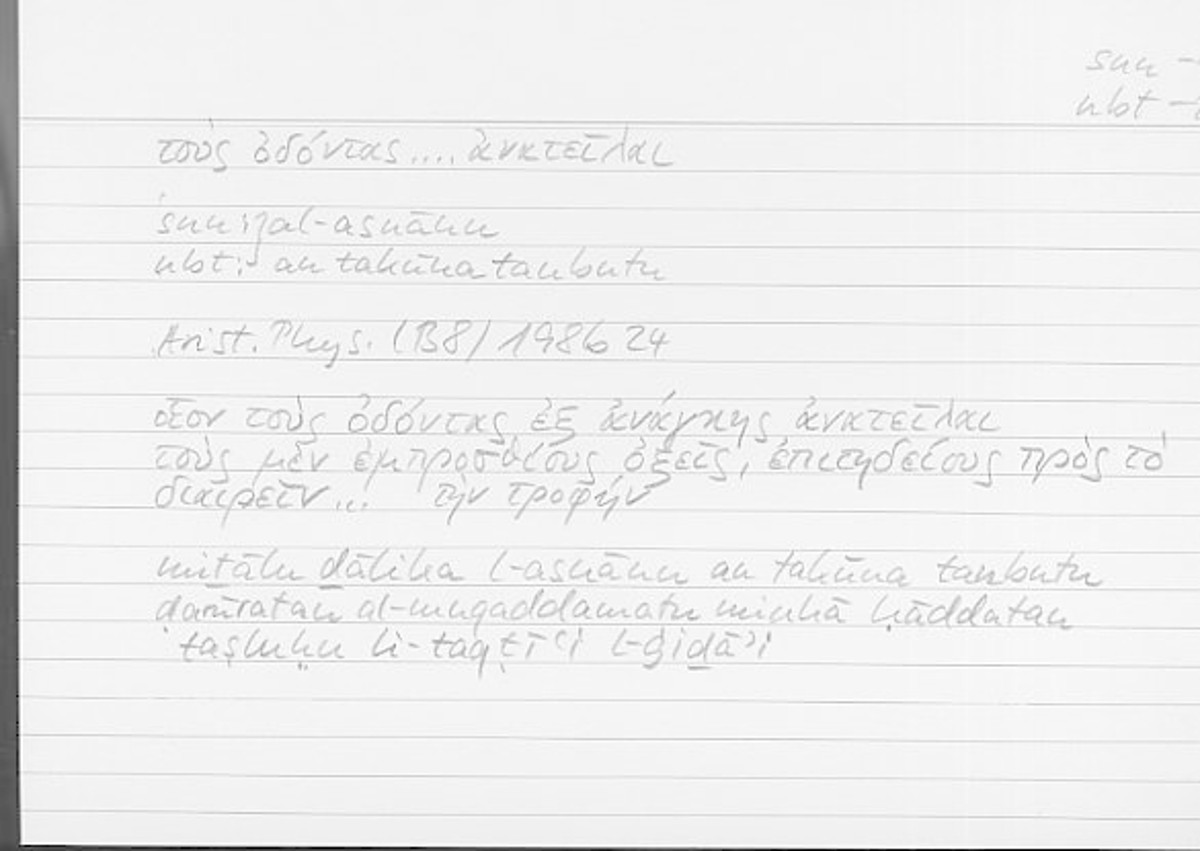 snn –
nbt –
τοὺς ὀδόντας.... ἀνατεῖλαι
snn: al-asnānu
nbt: an takūna tanbutu
Arist. Phys. (B8) 198b 24
οἷον τοὺς ὀδόντας ἐξ ἀνάγκης ἀνατεῖλαι
τοὺς μὲν ἐμπροσθίους ὀξεῖς, ἐπιτηδείους πρὸς τὸ
διαιρεῖν... τὴν τροφήν
miṯālu ḏālika l-asnānu an takūna tanbutu
ḍarūratan al-muqaddamatu minhā ḥāddatan
taṣluḥu li-taqṭīʿi l-ġiḏāʾi